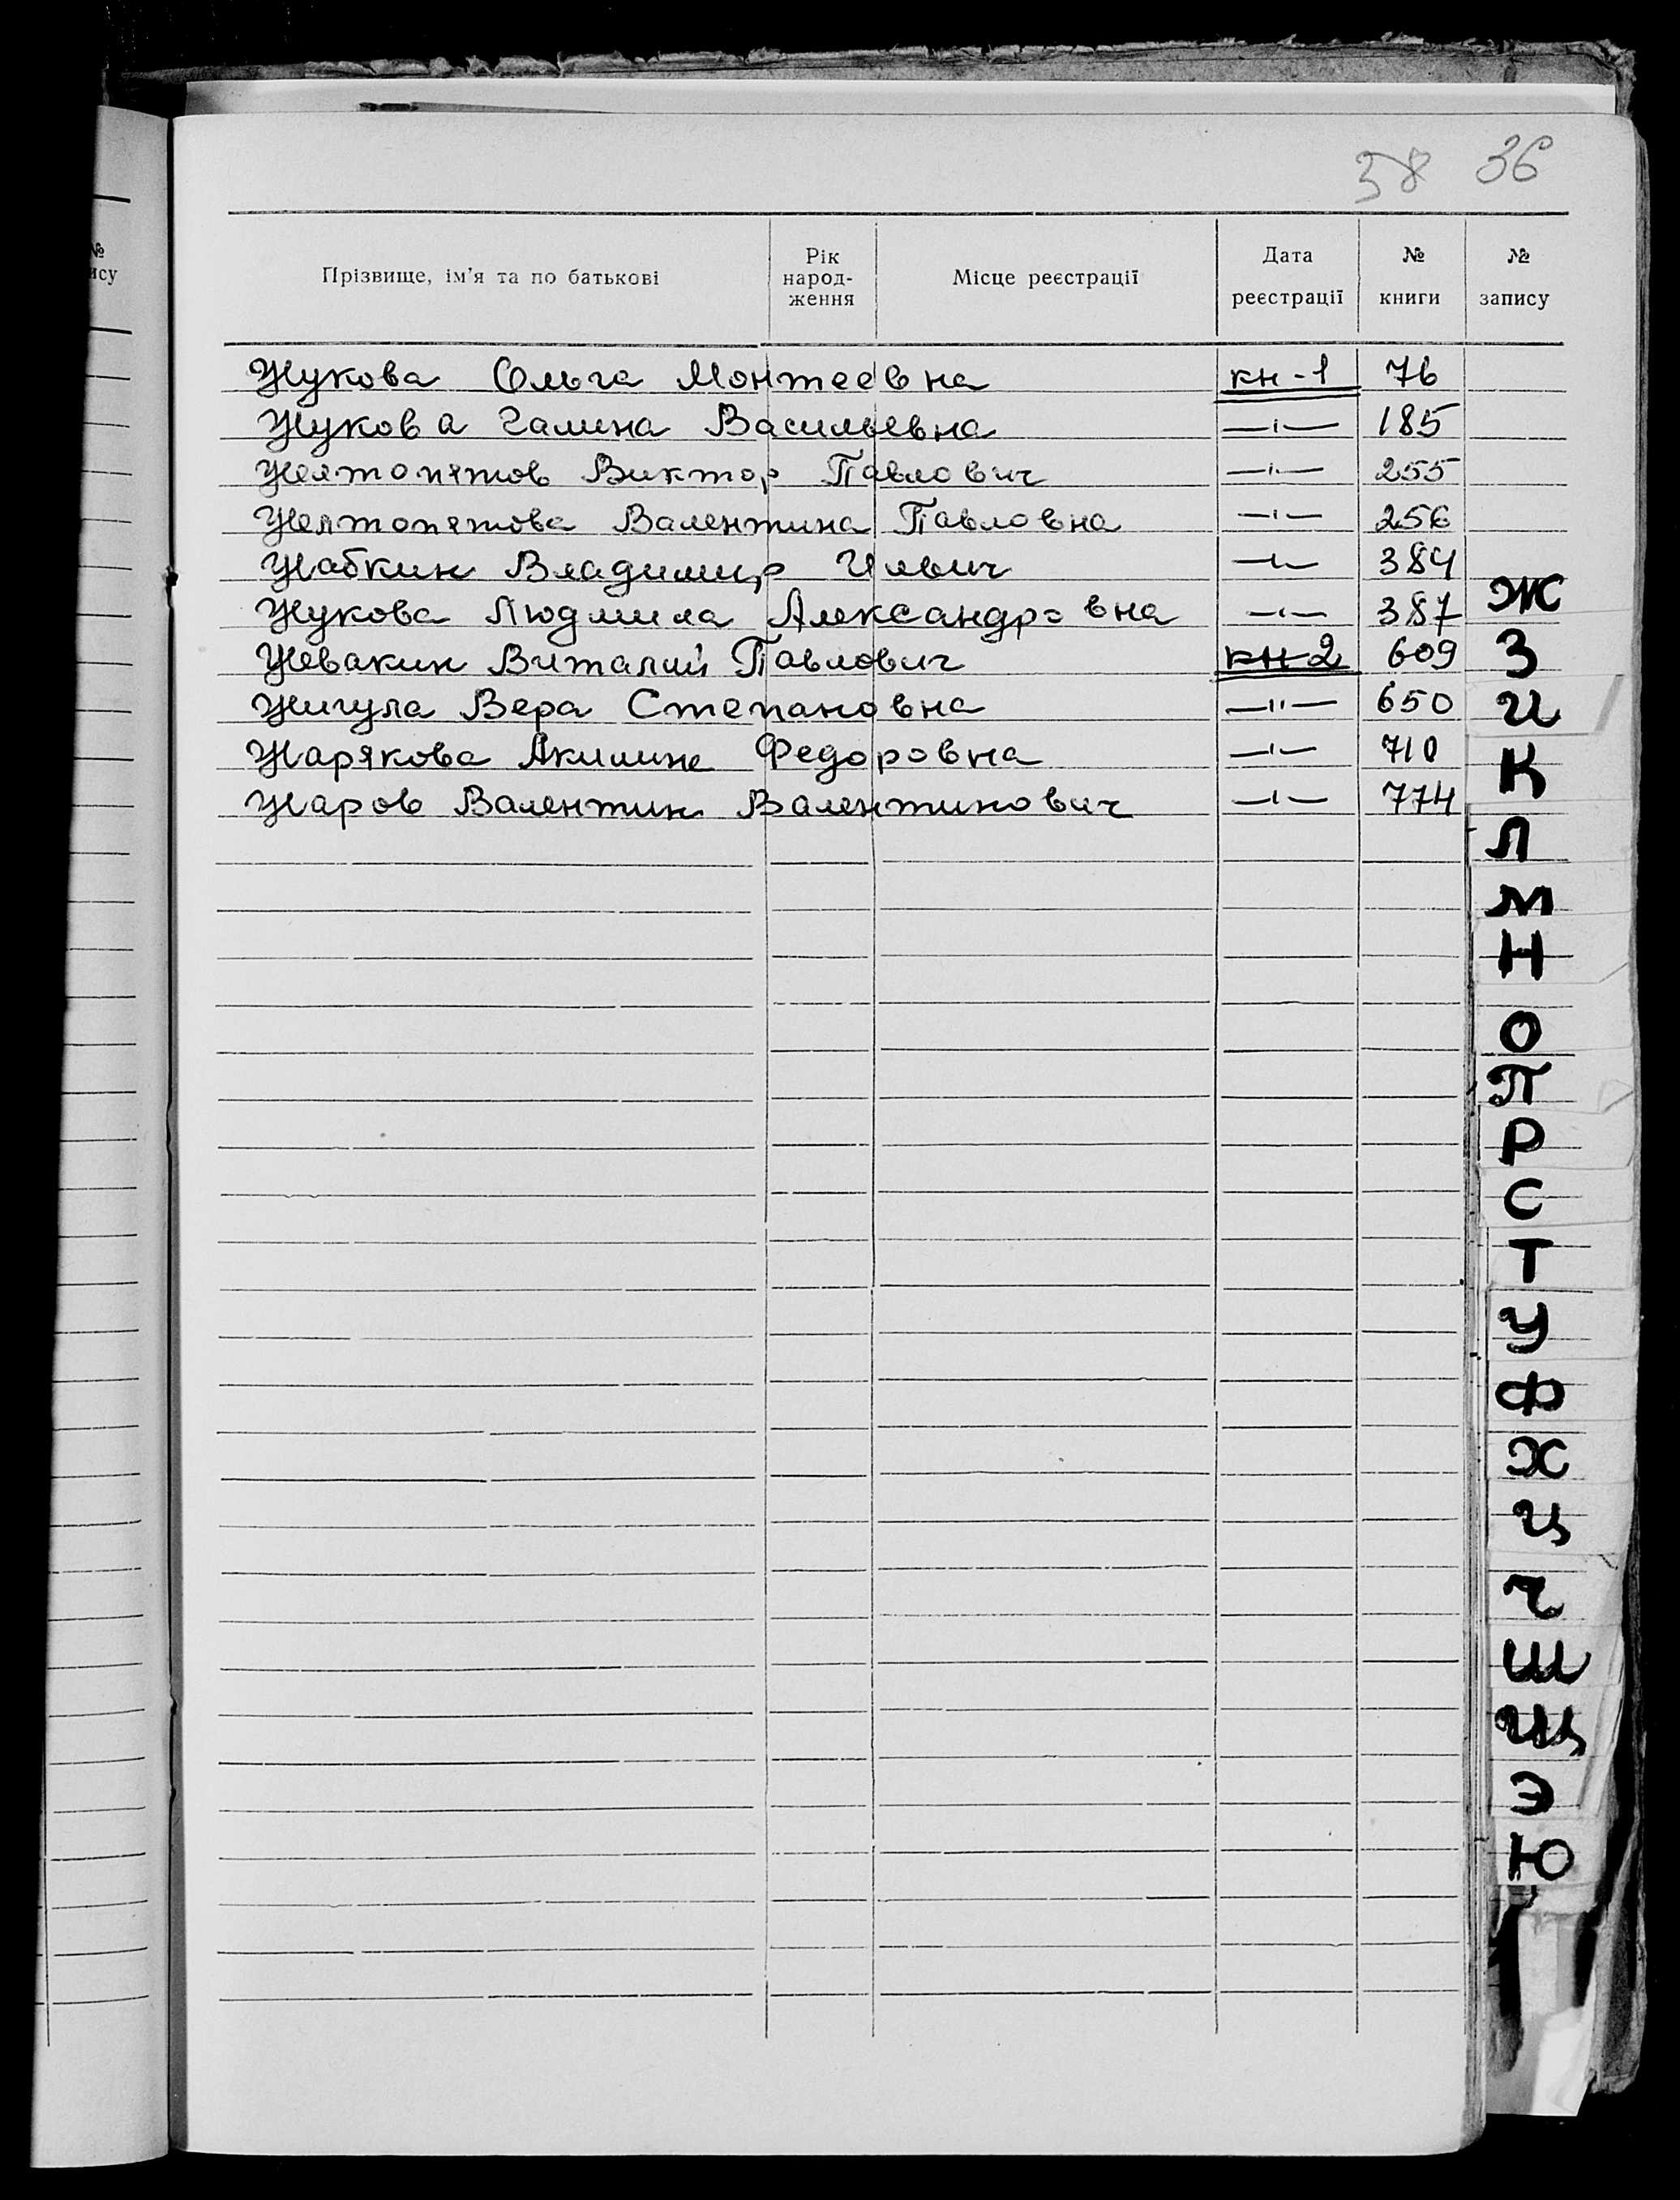 38 36
№
ису
Прізвище, ім'я та по батькові
Рік народ-ження
Місце реєстрації
Дата реєстрації
№ книги
№ запису
Жукова Ольга Монтеевна кн-1 76
Жукова Галина Васильевна —ı— 185
Желтопятов Виктор Павлович —ı— 255
Желтопятова Валентина Павловна —ı— 256
Жабкин Владимир Ильич —ı— 384
Жукова Людмила Александровна —ı— 387
Жевакин Виталий Павлович кн-2 609
Жигула Вера Степановна —ıı— 650
Жарякова Акилине Федоровна —ı— 710
Жаров Валентин Валентинович —ı— 774
Ж
З
И
К
Л
М
Н
О
П
Р
С
Т
У
Ф
Х
Ц
Ч
Ш
Щ
Э
Ю